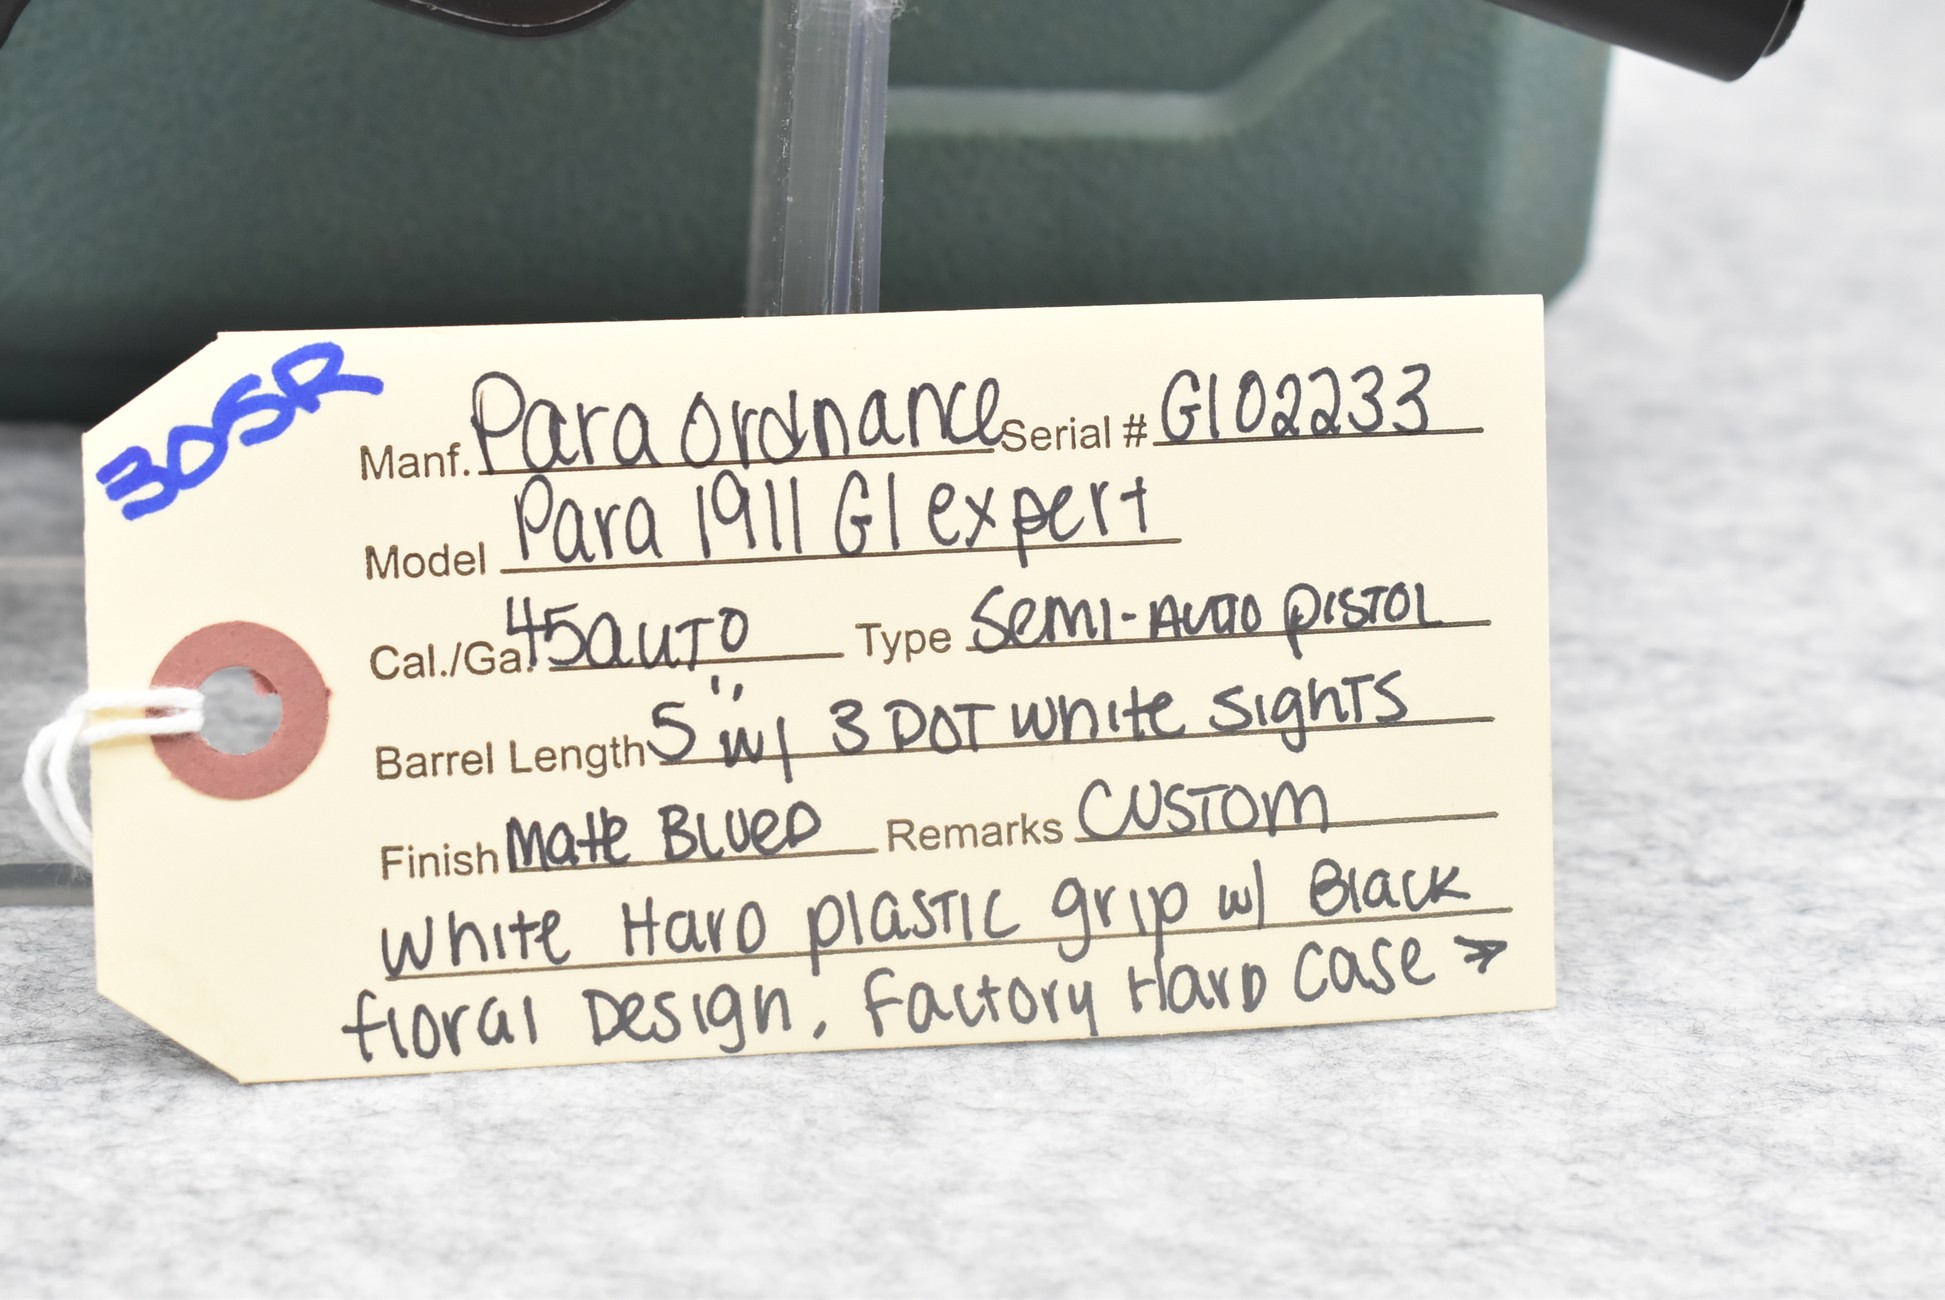 305R
Manf. Para Ordnance Serial # G102233
Model Para 1911 G1 expert
Cal./Ga. 45 auto Type Semi-Auto pistol
Barrel Length 5" w/ 3 DOT white sights
Finish Matte Blued Remarks Custom
white Hard plastic grip w/ Black
floral Design, Factory Hard case →